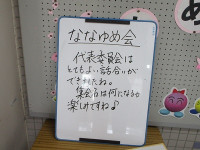 ななゆめ会
代表委員会は
とてもよい話合いが
できましたね。
集会名は何になるか
楽しみですね♪